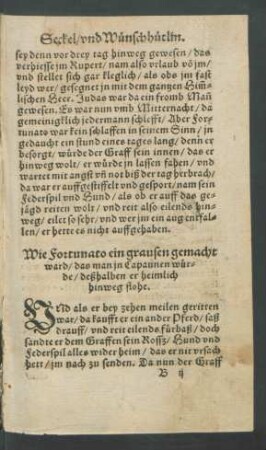 Seckel/ vnd Wünschhütlin.
sey denn vor drey tag hinweg gewesen/ das
verhiesse jm Rupert/ nam also vrlaub vō jm/
vnd stellet sich gar kleglich/ als obs jm fast
leyd wer/ gesegnet jn mit dem gantzen Him̄-
lischen Heer. Judas war da ein fromb Mañ
gewesen. Es war nun vmb Mitternacht/ da
gemeinigklich jedermann schlefft/ Aber For-
tunato war kein schlaffen in seinem Sinn/ jn
gedaucht ein stund eines tages lang/ denn er
besorgt/ würde der Graff sein innen/ das er
hinweg wolt/ er würde jn lassen fahen/ vnd
wartet mit angst vñ not biß der tag herbrach/
da war er auffgestiffelt vnd gesport/ nam sein
Federspil vnd Hund/ als ob er auff das ge-
jägd reiten wolt/ vnd reit also eilends hin-
weg/ eilet so sehr/ vnd wer jm ein aug entfal-
len/ er hette es nicht auffgehaben.
Wie Fortunato ein grausen gemacht
ward/ das man jn Capaunen wür-
de/ deßhalben er heimlich
hinweg flohe.
VNd als er bey zehen meilen geritten
war/ da kaufft er ein ander Pferd/ saß
drauff/ vnd reit eilends fürbaß/ doch
sandte er dem Graffen sein Rossz/ Hund vnd
Federspil alles wider heim/ das er nit vrsach
hett/ jm nach zu senden. Da nun der Graff
B ij